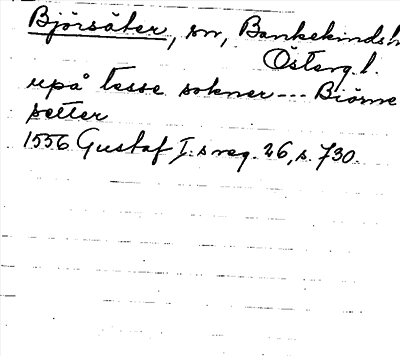 Björsäter, sn, Bankekinds h
Österg. l.
upå tesse sokner --- Biörne
setter
1556 Gustaf I:s reg. 26, s. 730.